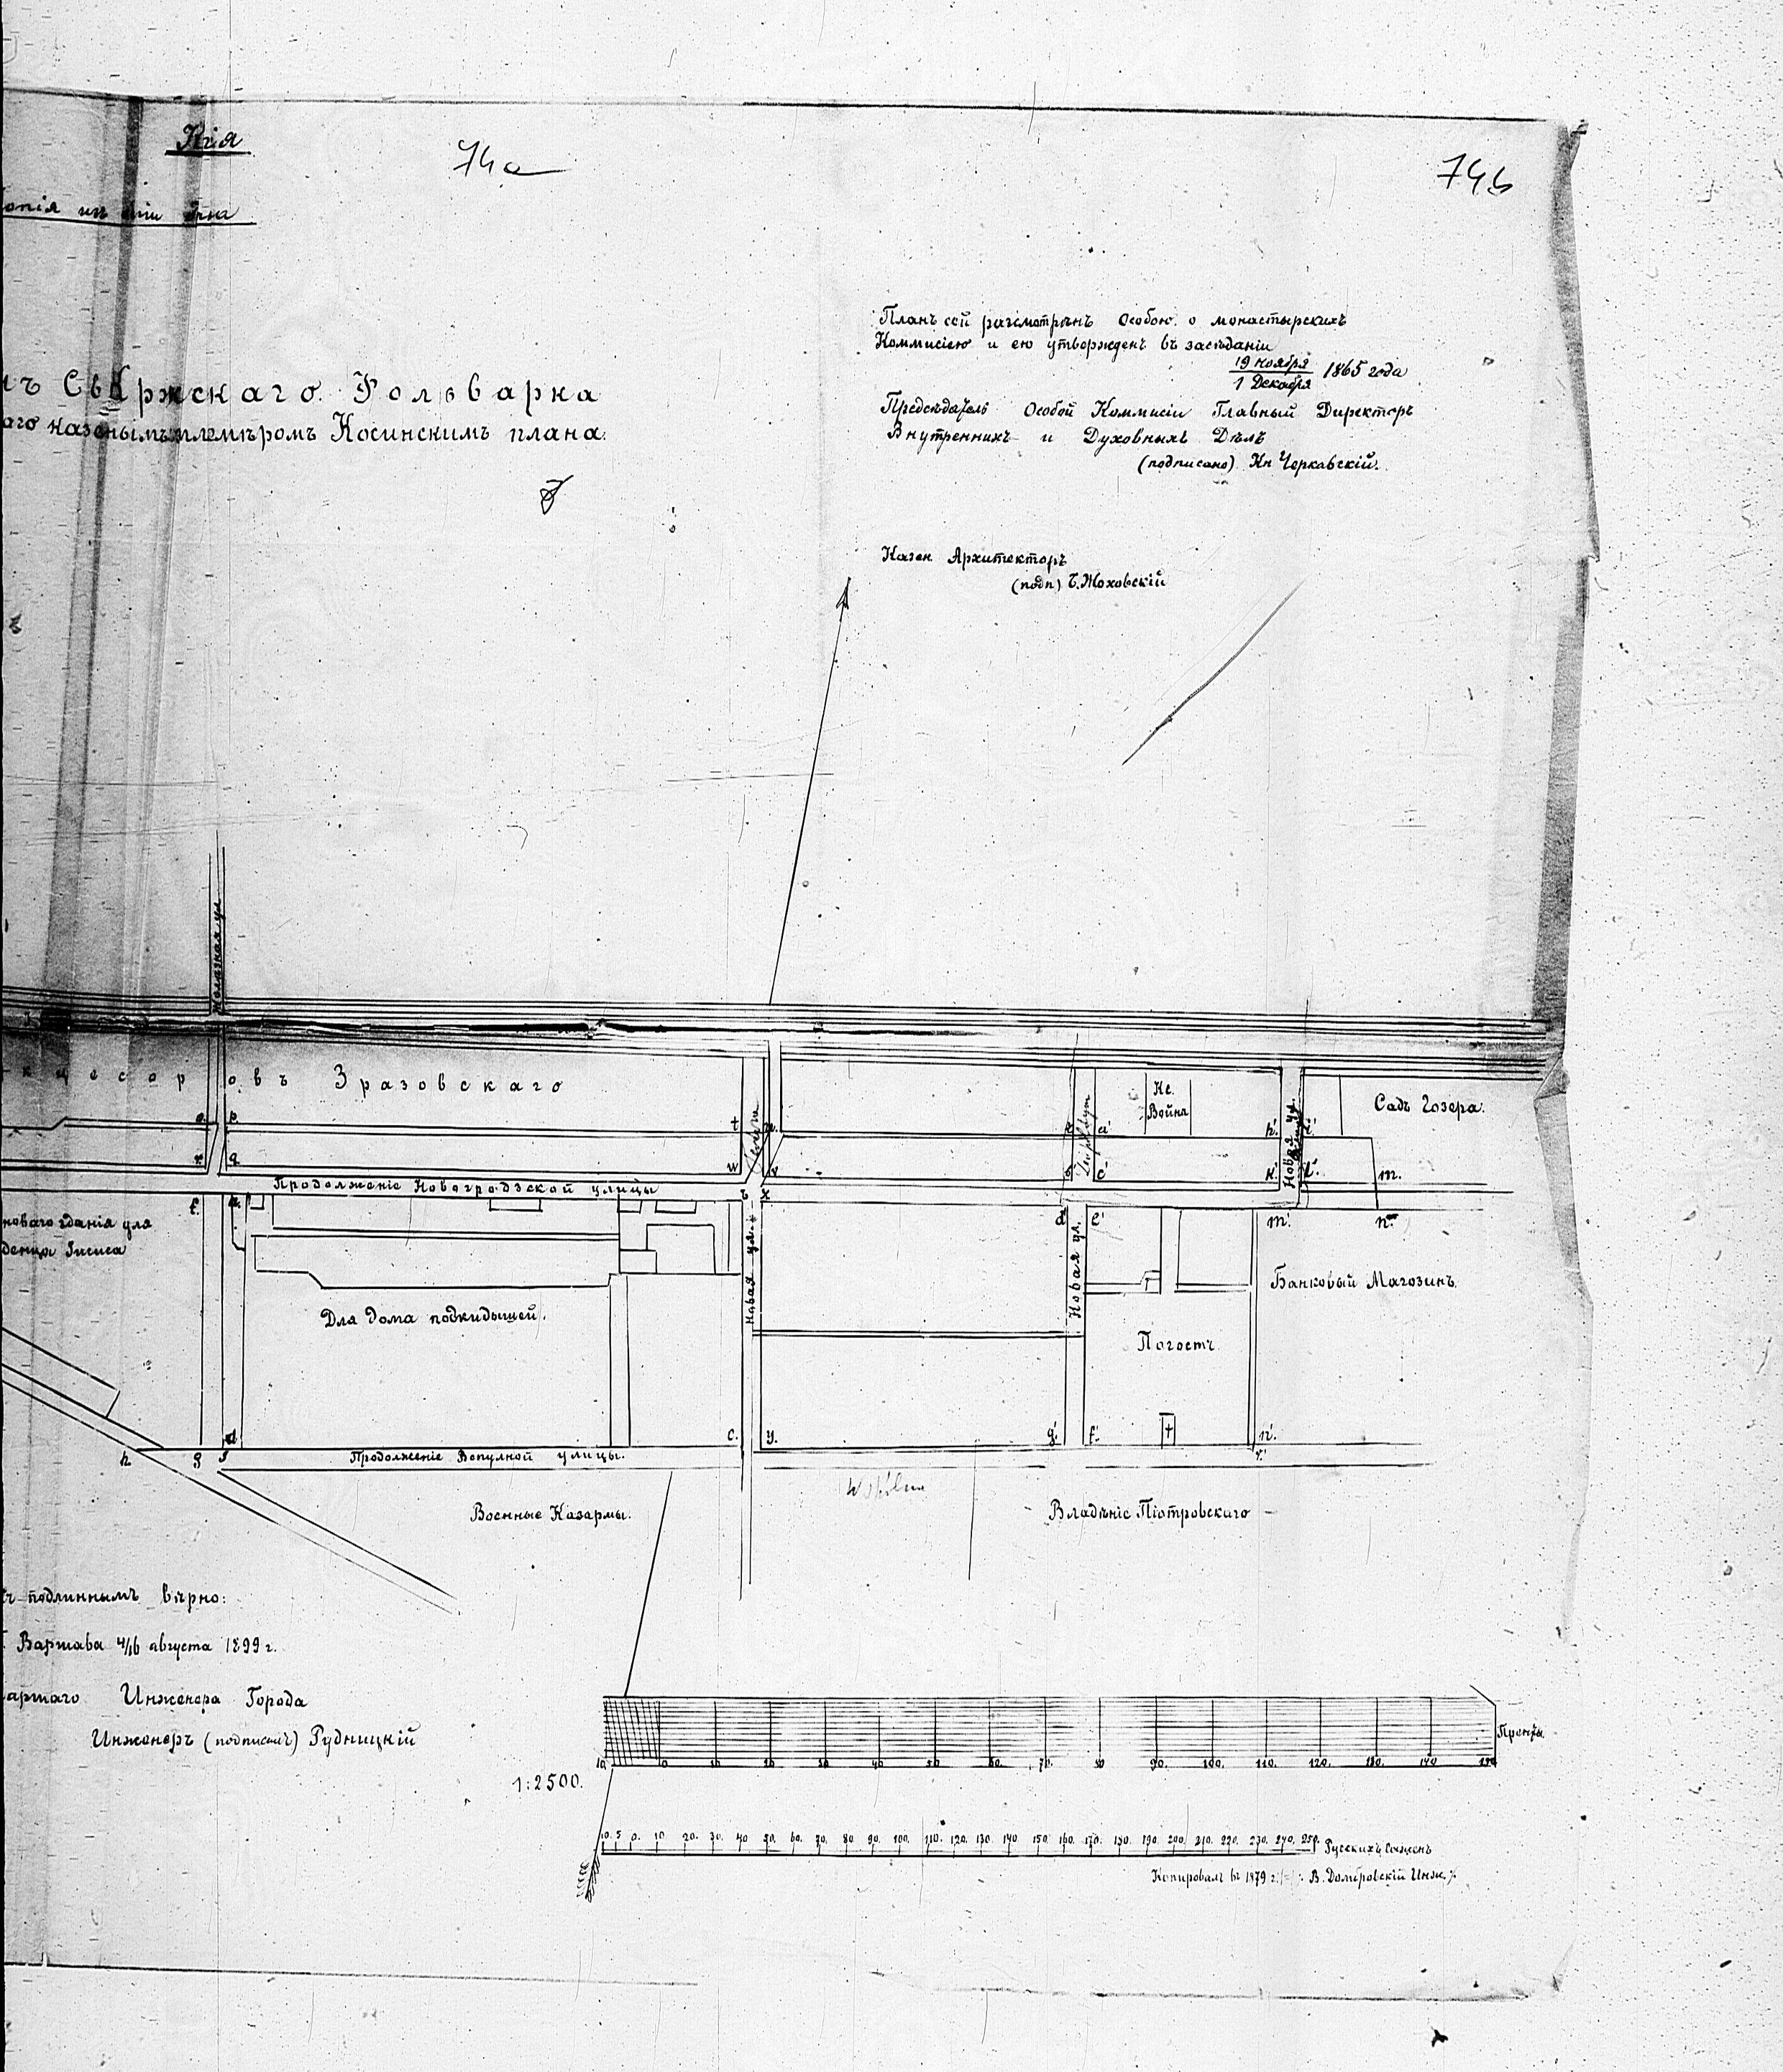 Кія
74а
74ь
опія
План сей разсмотрѣнъ Особою о монастырскихъ
Коммисіею и ею утвержденъ въ засѣданіи
19 ноября
1 Декабря
1865 года
Предсѣдатель Особой Коммисіи Главный Директоръ
Внутреннихъ и Духовныхъ Дѣлъ
(подписано) Кн Черкавскій.
Свѣржскаго Фольварка
Косинскимъ плана
Казен. Архитекторъ
(подп) Б. Жоховскій
Желѣзная ул
кцесоровъ Зразовскаго
o. p.
t u.
a'
h' i'
Не.
Война
Садъ Гозера.
r. q.
w v
b' c'
k' l'
m.
Продолженіе Новогродзской улицы
f.
x
d' e'
m'
n.
новаго зданія для
Новая ул.
Новая ул.
Новая ул.
Банковый Магозинъ
Для дома подкидышей.
Погостъ
h g
d
c. y.
g' f.'
n'.
r.'
Продолженіе Вспулной улицы.
Военные Казармы.
Владѣніе Піотровскаго
подлиннымъ вѣрно:
Варшава 4/16 августа 1899 г.
аршаго Инженера Города
Инженеръ (подписалъ) Рудницкій
Пренты.
10. 0 10 20 30 40 50. 60. 70. 80 90. 100. 110. 120. 130. 140 150
1:2500.
10. 5 0. 10 20. 30. 40 50. 60. 70. 80 90. 100. 110. 120. 130. 140. 150. 160. 170. 180. 190. 200. 210. 220. 230. 240. 250. Русскихъ Сажен
Копировалъ въ 1879 г. В. Домбровскій Инж.